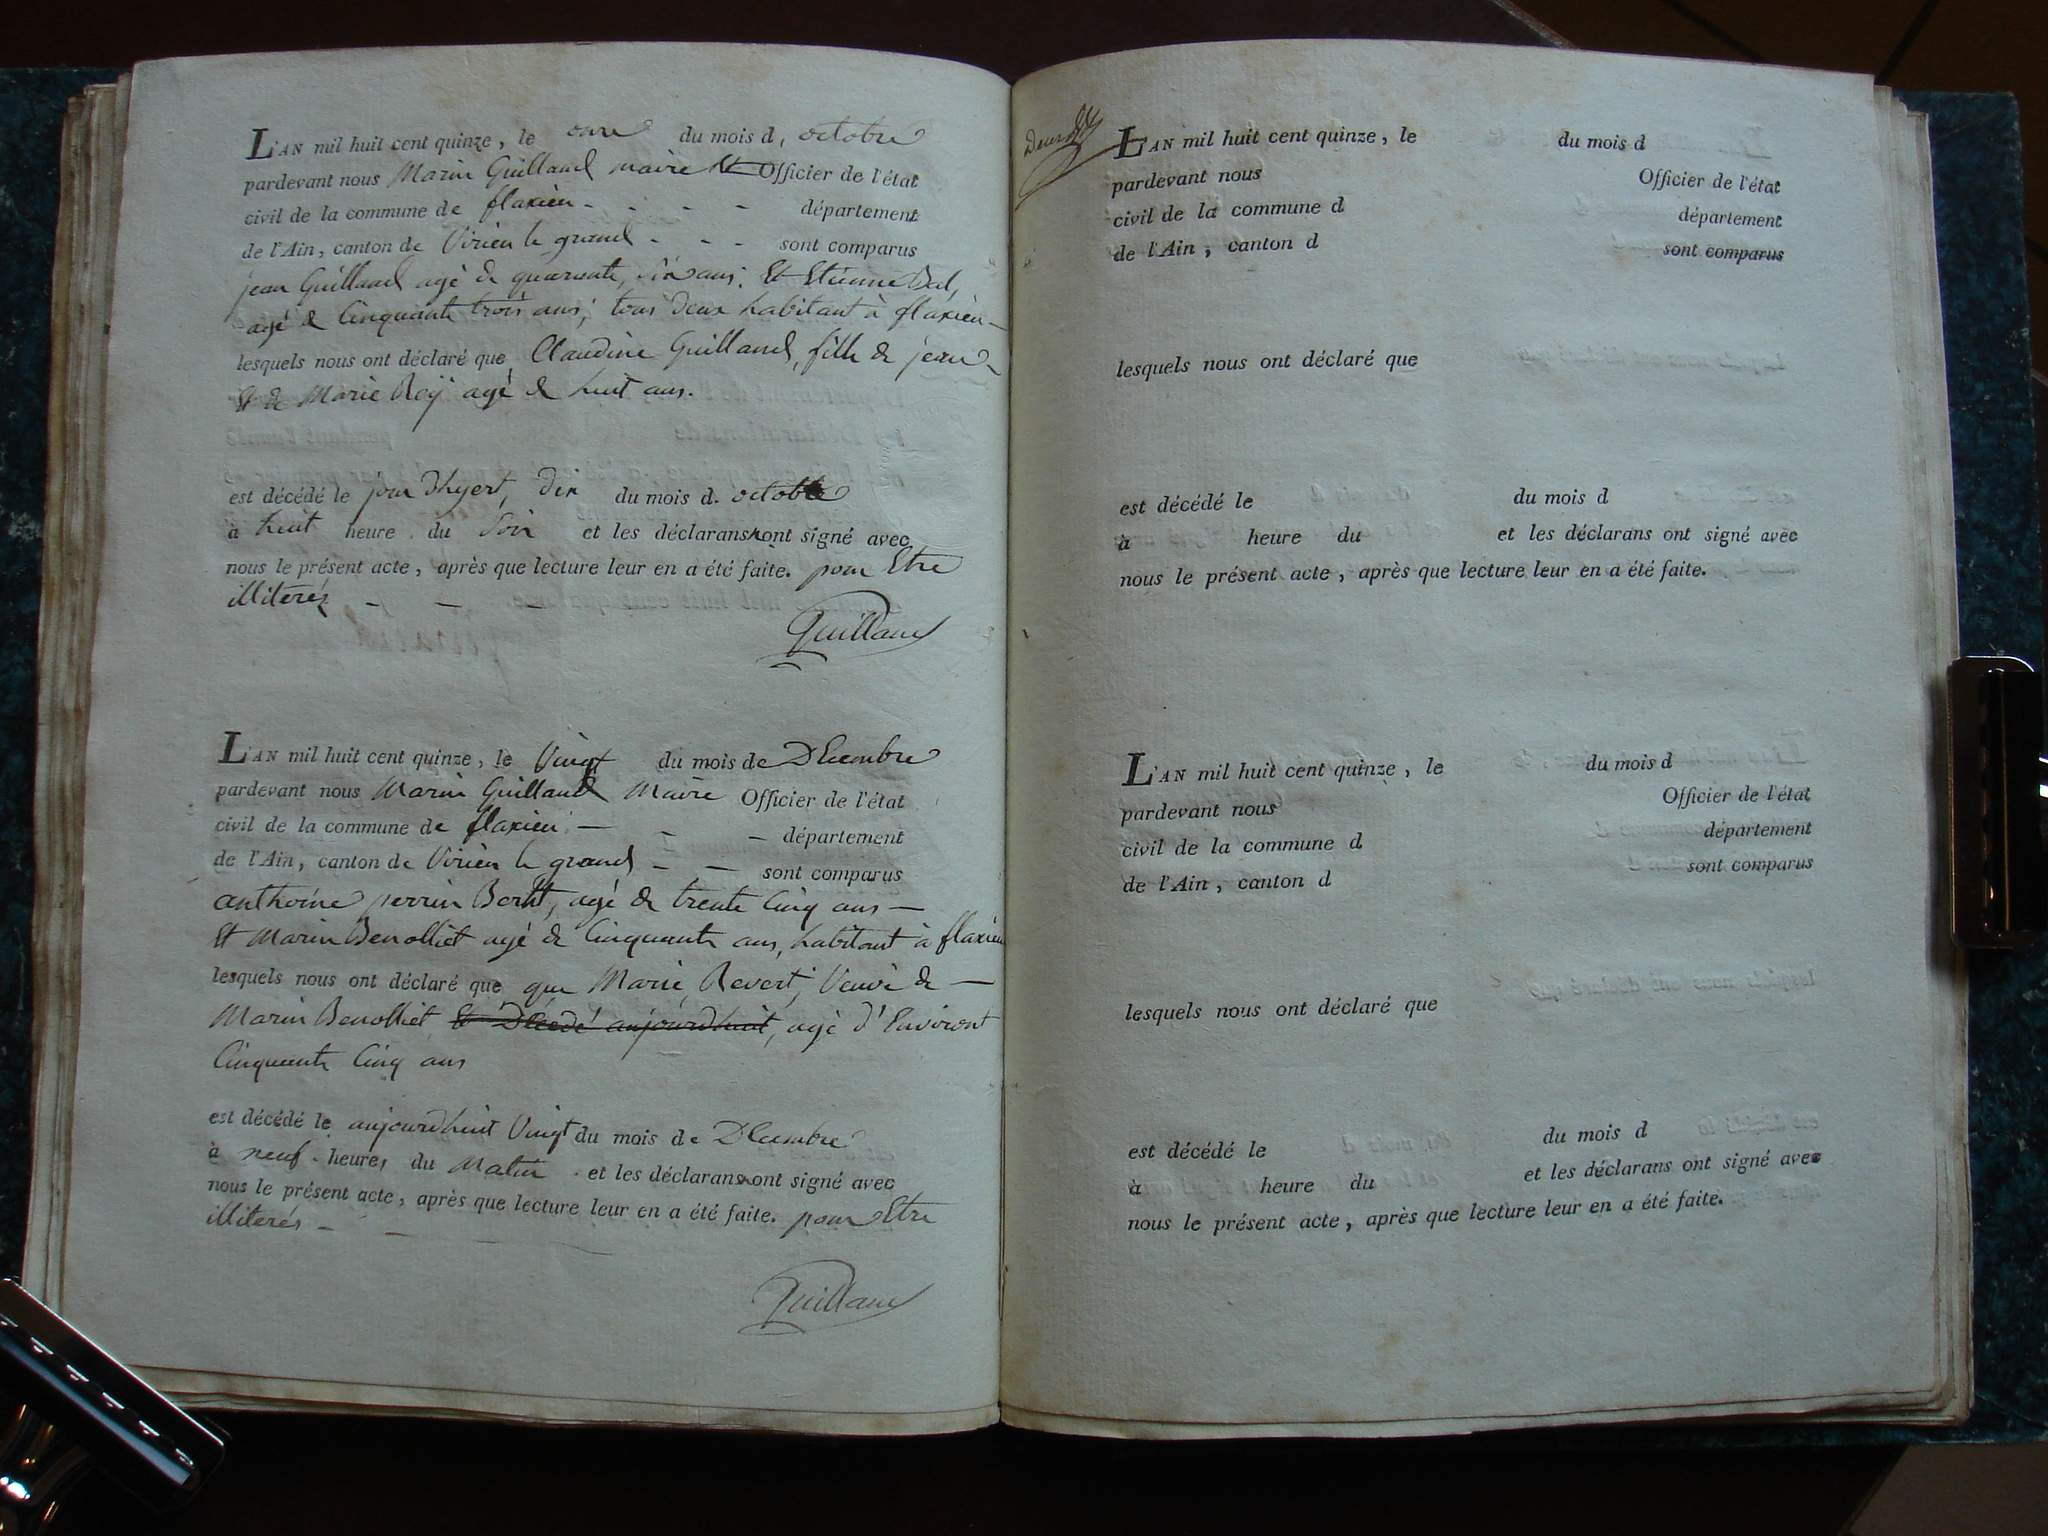 L'AN mil huit cent quinze, le onze du mois d, octobre
pardevant nous Marin Guilland maire et Officier de l'état
civil de la commune de flaxieu - - - - département
de l'Ain, canton de Virieu le grand - - - sont comparus
jean Guilland agé de quarante, six ans; Et Etienne Bal,
agé de Cinquante trois ans; tous deux habitant à flaxieu -
lesquels nous ont déclaré que Claudine Guilland, fille de jean
Et de Marie Reÿ agé de huit ans.
est décédé le jour d'hyert, dix du mois d. octobre
à huit heure du Soir et les déclarans ont signé avec
nous le présent acte, après que lecture leur en a été faite. pour Etre
illiterés - - -
Guilland
L'AN mil huit cent quinze, le Vingt du mois de Dcembre
pardevant nous Marin Guilland Maire Officier de l'état
civil de la commune de flaxieu - - - département
de l'Ain, canton de Virieu le grand - - sont comparus
anthoine perrin Bertet, agé de trente Cinq ans -
Et Marin Benolliet agé de Cinquante ans, habitant à flaxieu
lesquels nous ont déclaré que que Marie, Revert, Veuve de -
Marin Benolliet Et Dcedé aujourdhuit, agé d'Environt
Cinquante Cinq ans
est décédé le aujourdhuit Vingt du mois de Dcembre
à neuf heures du Matin et les déclarans ont signé avec
nous le présent acte, après que lecture leur en a été faite. pour Etre
illiterés -
Guilland
L'AN mil huit cent quinze, le du mois d
pardevant nous Officier de l'état
civil de la commune d département
de l'Ain, canton d sont comparus
lesquels nous ont déclaré que
est décédé le du mois d
à heure du et les déclarans ont signé avec
nous le présent acte, après que lecture leur en a été faite.
L'AN mil huit cent quinze, le du mois d
pardevant nous Officier de l'état
civil de la commune d département
de l'Ain, canton d sont comparus
lesquels nous ont déclaré que
est décédé le du mois d
à heure du et les déclarans ont signé avec
nous le présent acte, après que lecture leur en a été faite.